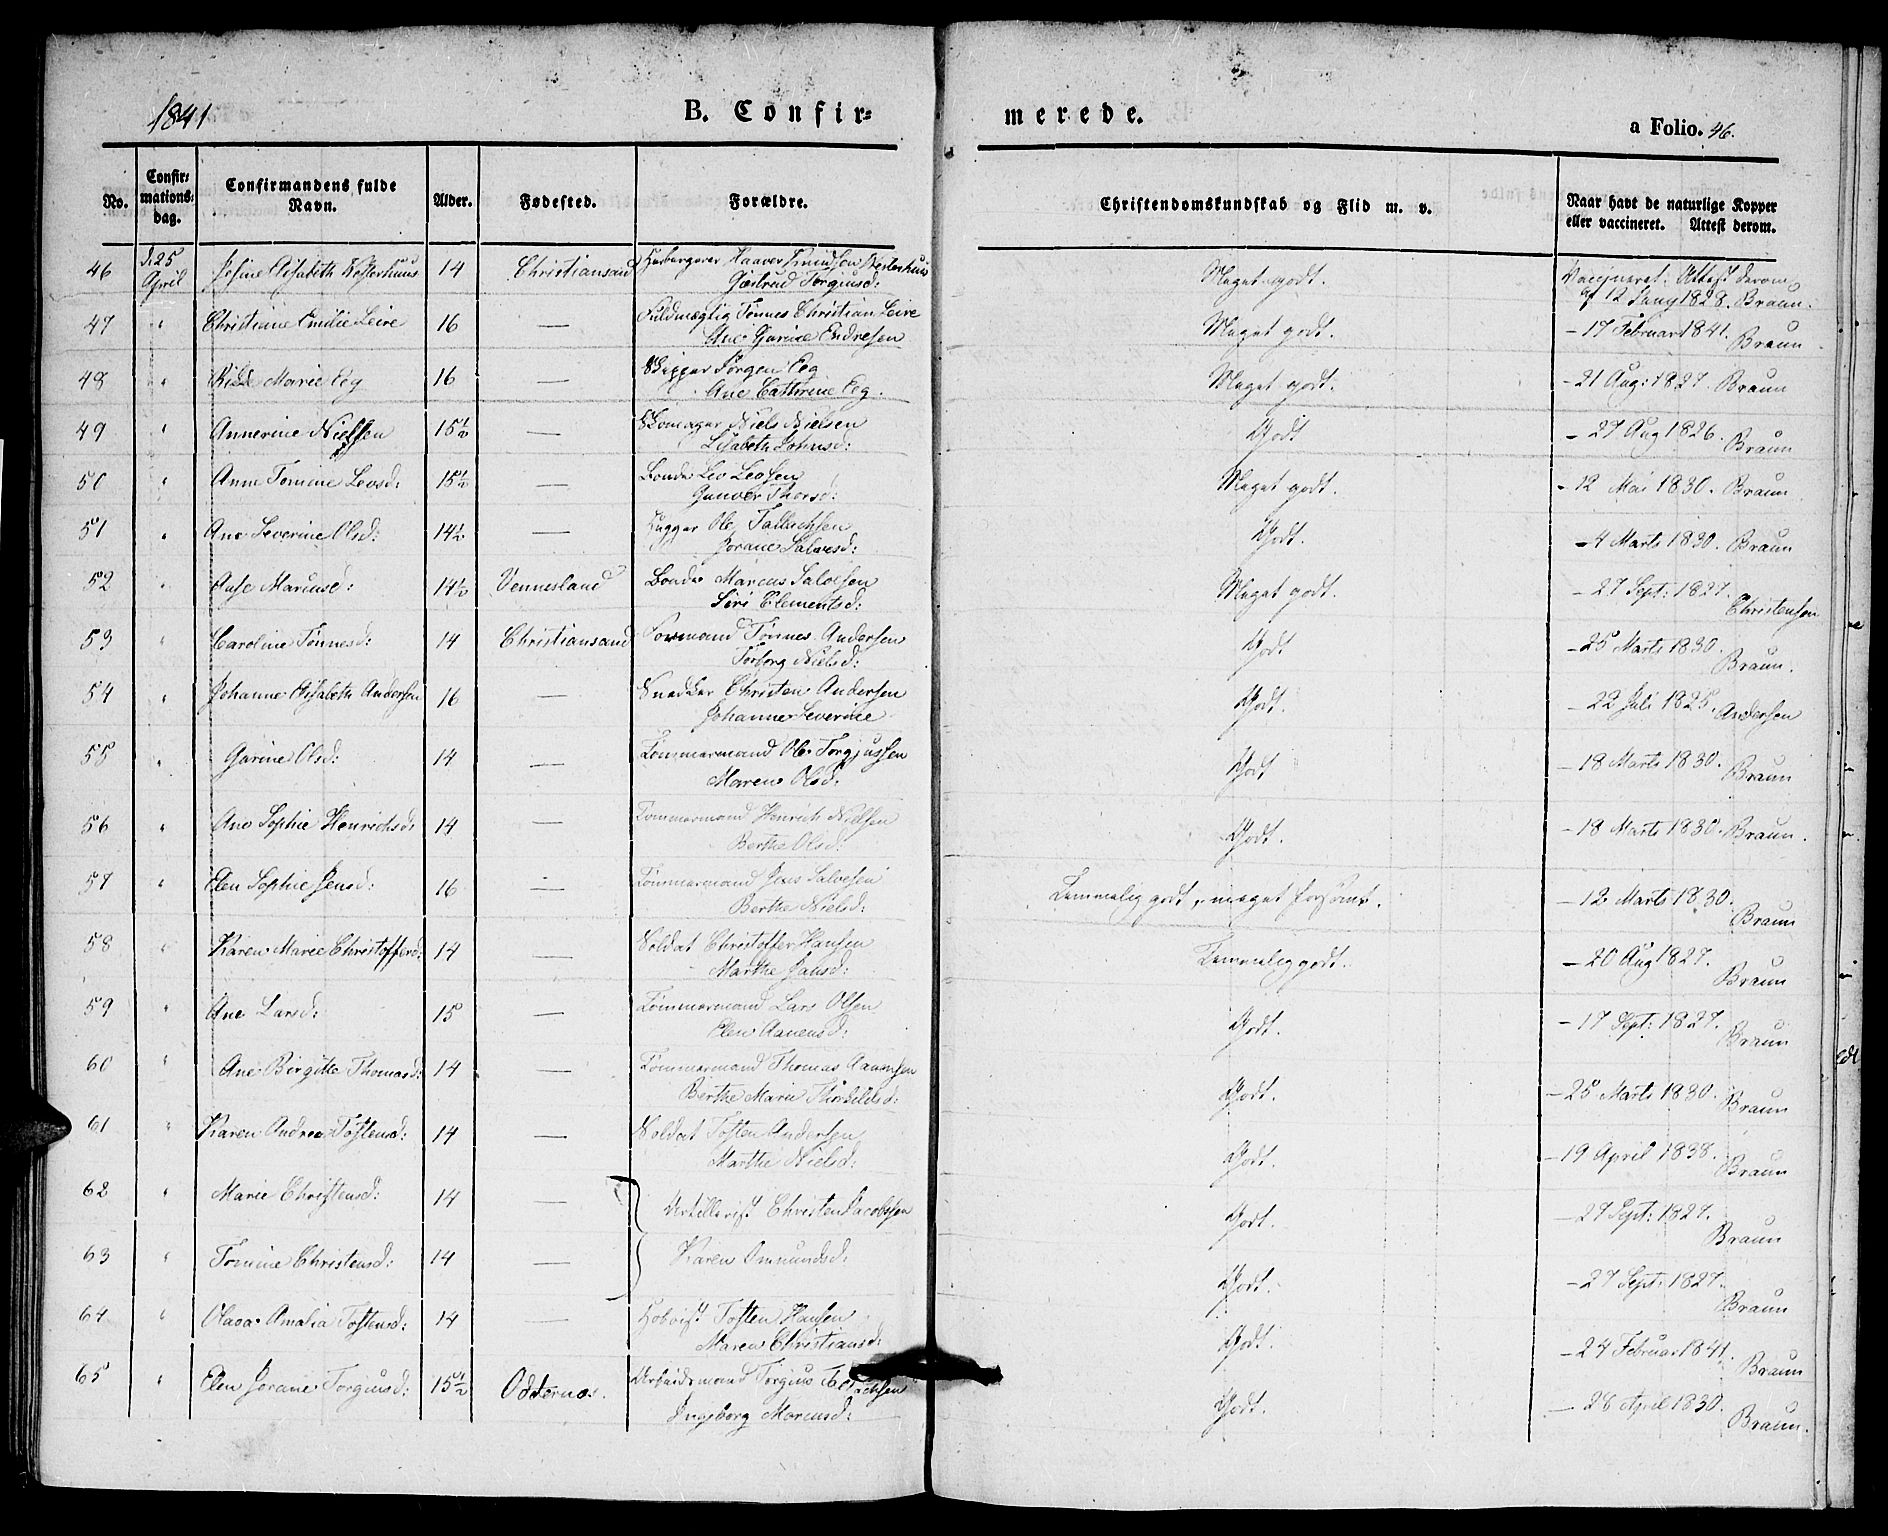 1841
B. Confir=
merede.
a Folio. 46.
No. Confir=mations=dag. Confirmandens fulde Navn. Alder. Fødested. Forældre. Christendomskundskab og Flid m. v. Naar havt de naturlige Kopper eller vaccineret. Attest derom.
46 d. 25 April Josine Elisabeth Westerhuus 14 Christiansand Haaver Knudsen Westerhuus
Giertrud Torgiusd: Meget godt. Vaccineret. Attest derom af 12 Juny 1828. Braun.
47 " Christiane Emilie Leire 16 — Fuldmægtig Tønnes Christian Leire
Ane Garine Endresen Meget godt. – 17 Februar 1841. Braun.
48 " Marie Eeg 16 — Skipper Jørgen Eeg
Ane Cathrine Eeg. Meget godt. – 21 Aug: 1827. Braun
49 " Annerine Nielsen 15½ — Skomager Niels Nielsen
Lisabeth Johnsd: Godt – 27 Aug 1826. Braun
50 " Anne Tomine Leosd: 15½ — Bonde Leo Leosen
Gunver Thorsd: Meget godt. – 12 Mai 1830. Braun.
51 " Ane Severine Olsd: 14½ — Ole Tallachsen
Jorane Salvesd: Godt. – 4 Marts 1830. Braun
52 " Aase Marcusd: 14½ Vennesland Bonde Marcus Salvesen
Siri Clementsd: Meget godt. – 27 Sept: 1827. Christensen
53 " Caroline Tønnesd: 14 Christiansand Formand Tønnes Andersen
Torborg Nielsd: Godt – 25 Marts 1830. Braun.
54 " Johanne Elisabeth Andersen 16 — Snedker Christen Andersen
Johanne Severine Godt. – 22 Juli 1825. Andersen
55 " Garine Olsd: 14 — Tømmermand Ole Torgjussen
Maren Olsd: Godt – 18 Marts 1830. Braun
56 " Ane Sophie Henrichsd: 14 — Tømmermand Henrich Nielsen
Berthe Olsd: Godt. – 18 Marts 1830. Braun.
57 " Elen Sophie Jensd: 16 — Tømmermand Jens Salvesen
Berthe Nielsd: Temmelig godt, meget forsømt. – 12 Marts 1830. Braun
58 " Karen Marie Christoffersd: 14 — Soldat Christoffer Hansen
Marthe Jansd: Temmelig godt. – 20 Aug 1827. Braun
59 " Ane Larsd: 15 — Tømmermand Lars Olsen
Elen Aanensd: Godt. – 17 Sept: 1827. Braun
60 " Ane Birgitte Thomasd: 14 — Tømmermand Thomas Aanensen
Berthe Marie Thorkildsd: Godt. – 25 Marts 1830. Braun
61 " Karen Andrea Tostensd: 14 — Soldat Tosten Andersen
Marthe Nielsd: Godt. – 19 April 1838. Braun
62 " Marie Christensd: 14 — Artillerist Christen Jacobsen Godt. – 27 Sept: 1827. Braun
63 " Tomine Christensd: 14 — Karen Omundsd: Godt. – 27 Sept: 1827. Braun
64 " Olava Amalia Tostensd: 14 — Tosten Hansen
Maren Christiansd: Godt. – 24 Februar 1841. Braun
65 " Elen Jorane Torgiusd: 15½ Oddernes. Arbeidsmand Torgius Tallachsen
Ingeborg Marcusd: Godt. – 28 April 1830. Braun.